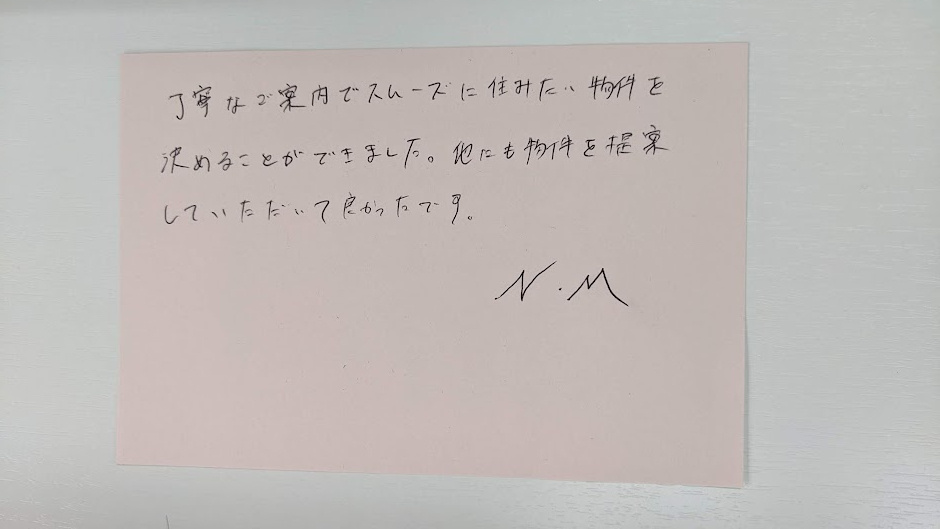 丁寧なご案内でスムーズに住みたい物件を
決めることができました。他にも物件を提案
していただいて良かったです。
N.M